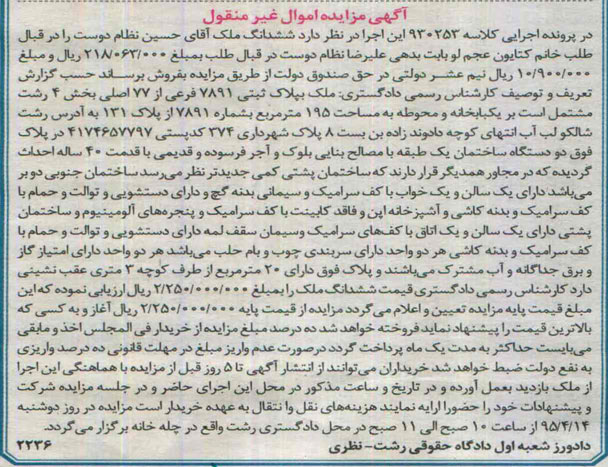 آگهی مزایده اموال غیر منقول
در پرونده اجرایی کلاسه ۹۳۰۲۵۳ این اجرا در نظر دارد ششدانگ ملک آقای حسین نظام دوست را در قبال
طلب خانم کتایون عجم لو بابت بدهی علیرضا نظام دوست در قبال طلب بمبلغ ۲۱۸/۰۶۳/۰۰۰ ریال و مبلغ
۱۰/۹۰۰/۰۰۰ ریال نیم عشر دولتی در حق صندوق دولت از طریق مزایده بفروش برساند حسب گزارش
تعریف و توصیف کارشناس رسمی دادگستری: ملک بپلاک ثبتی ۷۸۹۱ فرعی از ۷۷ اصلی بخش ۴ رشت
مشتمل است بر یکبابخانه و محوطه به مساحت ۱۹۵ مترمربع بشماره ۷۸۹۱ از پلاک ۱۳۱ به آدرس رشت
شالکو لب آب انتهای کوچه دادوند زاده بن بست ۸ پلاک شهرداری ۳۷۴ کدپستی ۴۱۷۴۶۵۷۷۹۷ در پلاک
فوق دو دستگاه ساختمان یک طبقه با مصالح بنایی بلوک و آجر فرسوده و قدیمی با قدمت ۴۰ ساله احداث
گردیده که در مجاور همدیگر قرار دارند که ساختمان پشتی کمی جدیدتر نظر می‌رسد ساختمان جنوبی دو بر
می‌باشد دارای یک سالن و یک خواب با کف سرامیک و سیمانی بدنه گچ و دارای دستشویی و توالت و حمام با
کف سرامیک و بدنه کاشی و آشپزخانه اپن و فاقد کابینت با کف سرامیک و پنجره‌های آلومینیوم و ساختمان
پشتی دارای یک سالن و یک اتاق با کف‌های سرامیک وسیمان سقف لمه دارای دستشویی و توالت و حمام با
کف سرامیک و بدنه کاشی هر دو واحد دارای سربندی چوب و بام حلب می‌باشد هر دو واحد دارای امتیاز گاز
و برق جداگانه و آب مشترک می‌باشند و پلاک فوق دارای ۲۰ مترمربع از طرف کوچه ۳ متری عقب نشینی
دارد کارشناس رسمی دادگستری قیمت ششدانگ ملک را بمبلغ ۲/۲۵۰/۰۰۰/۰۰۰ ریال ارزیابی نموده که این
مبلغ قیمت پایه مزایده تعیین و اعلام می‌گردد مزایده از قیمت پایه ۲/۲۵۰/۰۰۰/۰۰۰ ریال آغاز و به کسی که
بالاترین قیمت را پیشنهاد نماید فروخته خواهد شد ده درصد مبلغ مزایده از خریدار فی المجلس اخذ و مابقی
می‌بایست حداکثر به مدت یک ماه پرداخت گردد درصورت عدم واریز مبلغ در مهلت قانونی ده درصد واریزی
به نفع دولت ضبط خواهد شد خریداران می‌توانند از انتشار آگهی تا ۵ روز قبل از مزایده با هماهنگی این اجرا
از ملک بازدید بعمل آورده و در تاریخ و ساعت مذکور در محل این اجرای حاضر و در جلسه مزایده شرکت
و پیشنهادات خود را حضورا ارایه نمایند هزینه‌های نقل وا نتقال به عهده خریدار است مزایده در روز دوشنبه
۹۵/۴/۱۴ از ساعت ۱۰ صبح الی ۱۱ صبح در محل دادگستری رشت واقع در چله خانه برگزار می‌گردد.
دادورز شعبه اول دادگاه حقوقی رشت- نظری ۲۲۳۶